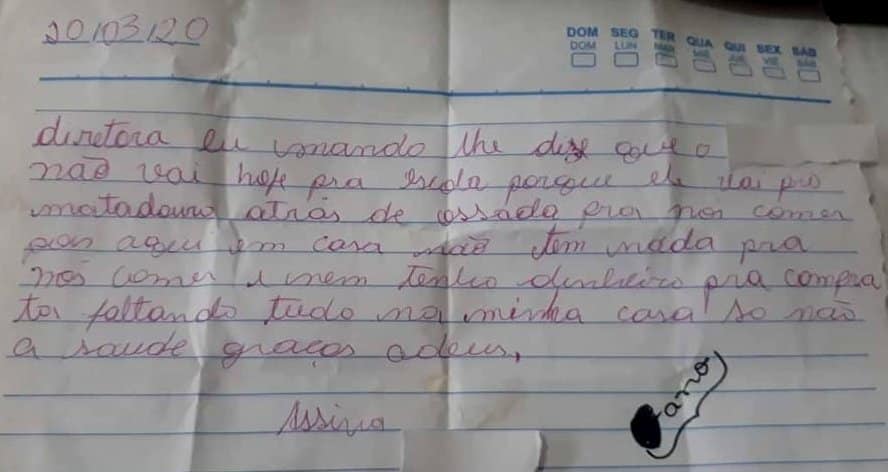 20/03/20
DOM SEG TER QUA QUI SEX SÁB
DOM LUN MAR MIÉ JUE VIE SÁB
diretora eu mando lhe dize que o
não vai hoje pra escola porque ele vai pro
matadouro atrás de ossada pra nos comer
por aqui em casa não tem nada pra
nós comer e nem tenho dinheiro pra compra
tar faltando tudo na minha casa so não
a saude graças adeus,
Assina
ano